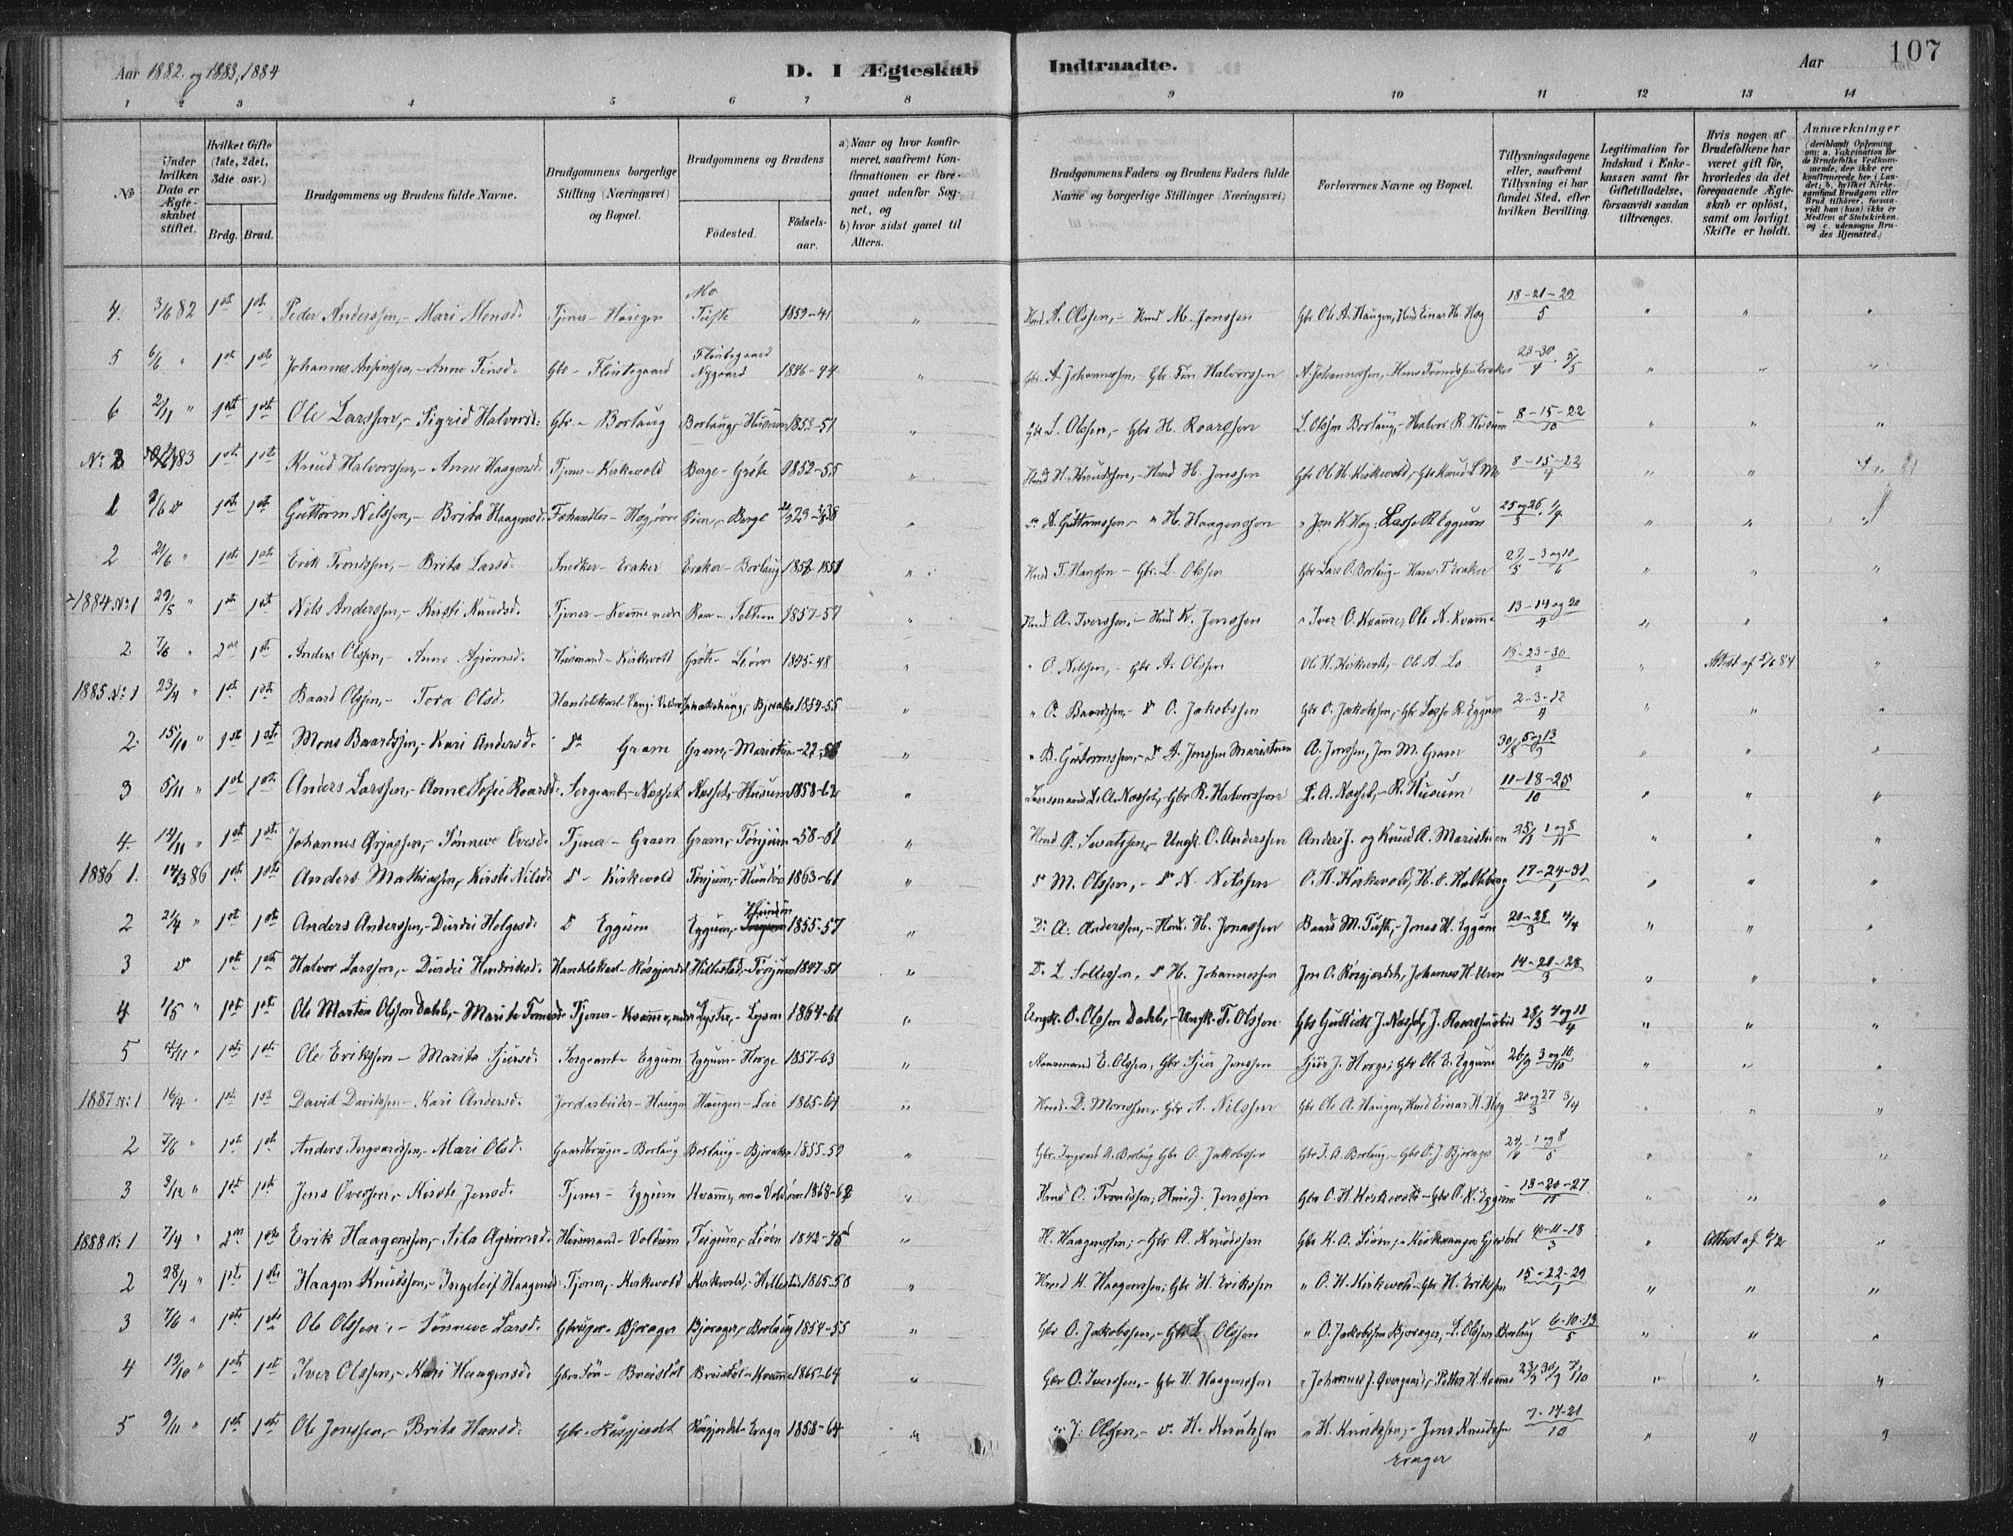 Aar 1882. og 1883, 1884
D. I Ægteskab Indtraadte.
Aar
107
1 2 3 4 5 6 7 8 9 10 11 12 13 14
No
Under hvilken Dato er Ægteskabet stiftet.
Hvilket Gifte (1ste, 2det, 3die osv.)
Brdg. Brud.
Brudgommens og Brudens fulde Navne.
Brudgommens borgerlige Stilling (Næringsvei) og Bopæl.
Brudgommens og Brudens
Födested. Födsels-aar.
a) Naar og hvor konfirmeret, saafremt Konfirmationen er foregaaet udenför Sognet, og
b) hvor sidst gaaet til Alters.
Brudgommens Faders og Brudens Faders fulde Navne og borgerlige Stillinger (Næringsvei)
Forlovernes Navne og Bopæl.
Tillysningsdagene eller, saafremt Tillysning ei har fundet Sted, efter hvilken Bevilling.
Legitimation for Indskud i Enkekassen samt for Giftetilladelse, forsaavidt saadan tiltrænges.
Hvis nogen af Brudefolkene har været gift för, hvorledes da det foregaaende Ægteskab er oplöst, samt om lovligt Skifte er holdt.
Anmærkninger (deriblandt Oplysning om: a. Vakcination for de Brudefolks Vedkommende, der ikke ere konfirmerede her i Landet; b. hvilket Kirkesamfund Brudgom eller Brud tilhörer, forsaavidt han (hun) ikke er Medlem af Statskirken, og c. udensogns Brudes Hjemsted.)
4. 3/6 82 1st 1st Peder Anderssen, - Mari Monsd. Tjener - Haugen Mo Tufte 1859-41 " Hmd A. Olssen, - Hmd M. Jonssen Gbr Ole A. Haugen, Hmd Einar H. Hæg 18-21-29/5 " " "
5 6/6 " 1st 1st Johannes - Anne Finsd. Gbr - Flintegaard Flintegaard Nygaard 1846-44 " Gbr. A Johannessen, - Gbr. Fin Halvorssen A Johannessen, Hans Trondssen Eraker 23-30/4 5/5 " " "
6 2/11 " 1st 1st Ole Larssen, - Sigrid Halvorsd. Gbr. - Borlaug Borlaug, - Husum 1853-51 " Gbr L. Olssen, - Gbr H. Roarssen L. Olssen Borlaug, - Halvor R. Husum 8-15-22/10 " " "
No 3 83 1st 1st Knud Halvorssen, - Anne Haagensd. Tjener - Kirkevold Berge - Grøte 1852-55 " Hmd H. Knudssen, - Hmd H. Jonssen Gbr Ole H. Kirkevold, - Gbr Knud L Mo 8-15-22/4 " "
1 1st 1st Guttorm Nilssen, - Brita Haagensd. Fehandler - Hægøren Øien, - Berge " N. Guttormssen, - " H. Haagenssen " Jon K. Hæg; Lasse R. Eggum 25 og 26/3 1/4 " "
2 21/6 " 1st 1st Erik Trondssen, - Brita Larsd. Snedker - Eraker Eraker - Borlaug 1852-1851 " Hmd T. Hanssen - Gbr. L. Olssen Gbr Lars O. Borlaug - Hans T. Eraker 27/5 - 3 og 10/6 " " "
1884 No 1 29/5 " 1st 1st Nils Anderssen, - Kirsti Knudsd. Tjener - Kvamme nedre Roe - Seltun 1857-57 " Hmd A. Iverssen, - Hmd K. Jenssen " Iver O. Kvamme, Ole N. Kvamme 13-14 og 20/4 " " "
2 7/6 " 2den 1st Anders Olsen, - Anne Agrimsd. Husmand - Kirkevold Grøte - Lioen 1845-48 " " O. Nilssen, - Gbr A. Olssen Ole H. Kirkevold, - Ole A. Lo 15-23-30/3 " Attest af 5/6 84 "
1885 No 1 23/4 " 1st 1st Baard Olssen, - Tora Olsd. Handelskarl - Vang i Valders Bjørake 1854-55 " " O. Baardssen, - Do O. Jakobssen Gbr O. Jakobssen, - Gbr Lasse R. Eggum 2-3-12/4 " " "
2. 15/10 " 1st 1ste Mons Baardssen, - Kari Andersd. Do Gram Gram, - Maristuen " " B. Guttormssen, - Do A. Jonssen Maristuen A. Jonssen, Jon M. Gram 30/8 6 og 13/9 " " "
3 5/11 " 1st 1st Anders Larssen, - Anne Sofie Roarsd. Sergeant, - Næsset Næsset, - Husum 1858-62 " Lensmand L. A. Næsset, - Gbr R. Halvorssen L. A. Næsset, - R. Husum 11-18-25/10 " " "
4. 12/11 " 1st 1st Johannes - Sønneve Olesd. Tjener - Gram Gram, - Tønjum -58-61 " Hmd - Ungk. O. Anderssen Anders J. og Knud A. Maristuen 25/10 1 og 8/11 " " "
1886 1. 14/3 86 1st 1ste Anders Mathiassen, Kirsti Nilsd. Do - Kirkevold Tønjum, - 1863-61 " Do M. Olssen, - Do N. Nilssen O. H. Kirkevold, H. O. 17-24-31/1 " " "
2 21/4 " 1st 1st Anders Anderssen, - Durdei Helgesd. Do Eggum Eggum, - 1855-57 " Do A. Anderssen, - Hmd. H. Jonassen Baard M. Tufte, - Jonas H. Eggum 20-28/3 4/4 " " "
3 Do 1st 1st Halvor Larssen, - Durdei Hendriksd. Handelskarl - Røsgjerdet Hillestad - Tønjum 1847-51 " Do. L. Sollessen, Do H. Johannessen Jon O. Røsgjerdet, Johannes H. 14-21-28/3 " " "
4 1/5 " 1st 1st Ole Marten Olssen Dahle, - Marite Tomesd. Tjener - Kvamme, nedre Lyster, - Lysne 1864-61 " Ungk. O. Olssen Dahle, - Ungk. T. Olssen Gbr Gulleik J. Næsset, J. 28/3 4 og 11/4 " " "
5 1st 1st Ole Erikssen - Marita Sjursd. Sergeant - Eggum Eggum - Horge 1857-63 " E. Olssen, Gbr Sjur Jenssen Sjur J. Horge; Gbr Ole E. Eggum 26/9 3 og 10/10 " " "
1887 No 1 16/4 " 1st 1st David Davidssen - Kari Andersd. Jordarbeider - Haugen Haugen - Loi 1865-64 " Hmd. D. Monssen, Gbr A. Nilssen Gbr Ole A. Haugen, Hmd Einar H. Hæg 20 og 27/3 3/4 " " "
2 7/6 " 1st 1st Anders Ingvardssen, - Mari Olsd. Gaardbruger - Borlaug Borlaug - Bjøraker 1855-59 " Gbr. Ingvard A. Borlaug Gbr O. Jakobssen Gbr I. A. Borlaug - Gbr O. J. Bjørager 24/4 - 1 og 8/5 " " "
3 3/12 " 1st 1st Jens Oversen, - Kirsti Jensd. Tjener - Eggum Kvamme, - Voldøen 1868-62 " Hmd O. Trondssen; Hmd J. Jenssen Gbr O. H. Kirkevold - Gbr O. N. Eggum 13-20-27/11 " " "
1888 No 1 7/4 " 2den 1ste Erik Haagenssen, - Sila Agrimsd. Husmand - Voldum Teigum, - Lioen 1842-45 " H. Haagenssen; - Gbr A. Knudssen Gbr K. A. Lioen; 4-11-18/3 " Attest af 6/2 "
2 28/4 " 1st 1ste Haagen Knudssen, - Ingeleif Haagensd. Tjener - Kirkevold Kirkevold, - Hillestad 1865-58 " Hmd K. Haagenssen; Gbr H. Erikssen " O. H. Kirkevold - Gbr H. Erikssen 15-22-29/1 " " "
3 7/6 " 1st 1ste Ole Olssen, - Sønneve Larsd. Gbruger - Bjørager Bjørager, - Borlaug 1854-55 " Gbr O. Jakobssen, - Gbr L. Olssen " O. Jakobssen Bjørager, - L. Olssen Borlaug 6-10-13/5 " " "
4 19/10 " 1ste 1st Iver Olssen, - Kari Haagensd. Gbr. Søn - Breistøl Breistøl - Kvamme 1865-64 " Gbr O. Iverssen, - Gbr H. Haagenssen " Johannes J. Øvregaard, - Petter H. Kvamme 23/9 30/9 7/10 " " "
5 9/11 " 1st 1ste Ole Jonssen, - Brita Hansd. Gbr. Røsgjerdet Røsgjerdet - Erager 1858-64 " J. Olssen, - H. Knutssen " H. Knudssen; - Jens Knudssen Erager 7-14-21/10 " " "